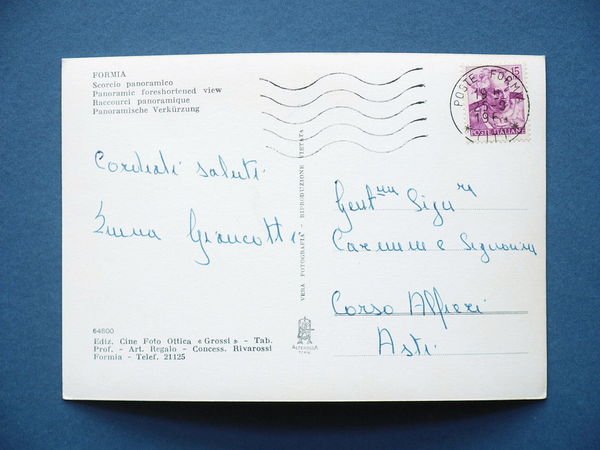 FORMIA
Scorcio panoramico
Panoramic foreshortened view
Raccourci panoramique
Panoramische Verkürzung
15
POSTE FORMIA
POSTE ITALIANE
Cordiali saluti
Emma
VERA FOTOGRAFIA - RIPRODUZIONE VIETATA
Corso Alfieri
Asti
64800
Ediz. Cine Foto Ottica «Grossi» - Tab.
Prof. - Art. Regalo - Concess. Rivarossi
Formia - Telef. 21125
ALTEROCCA
TERNI